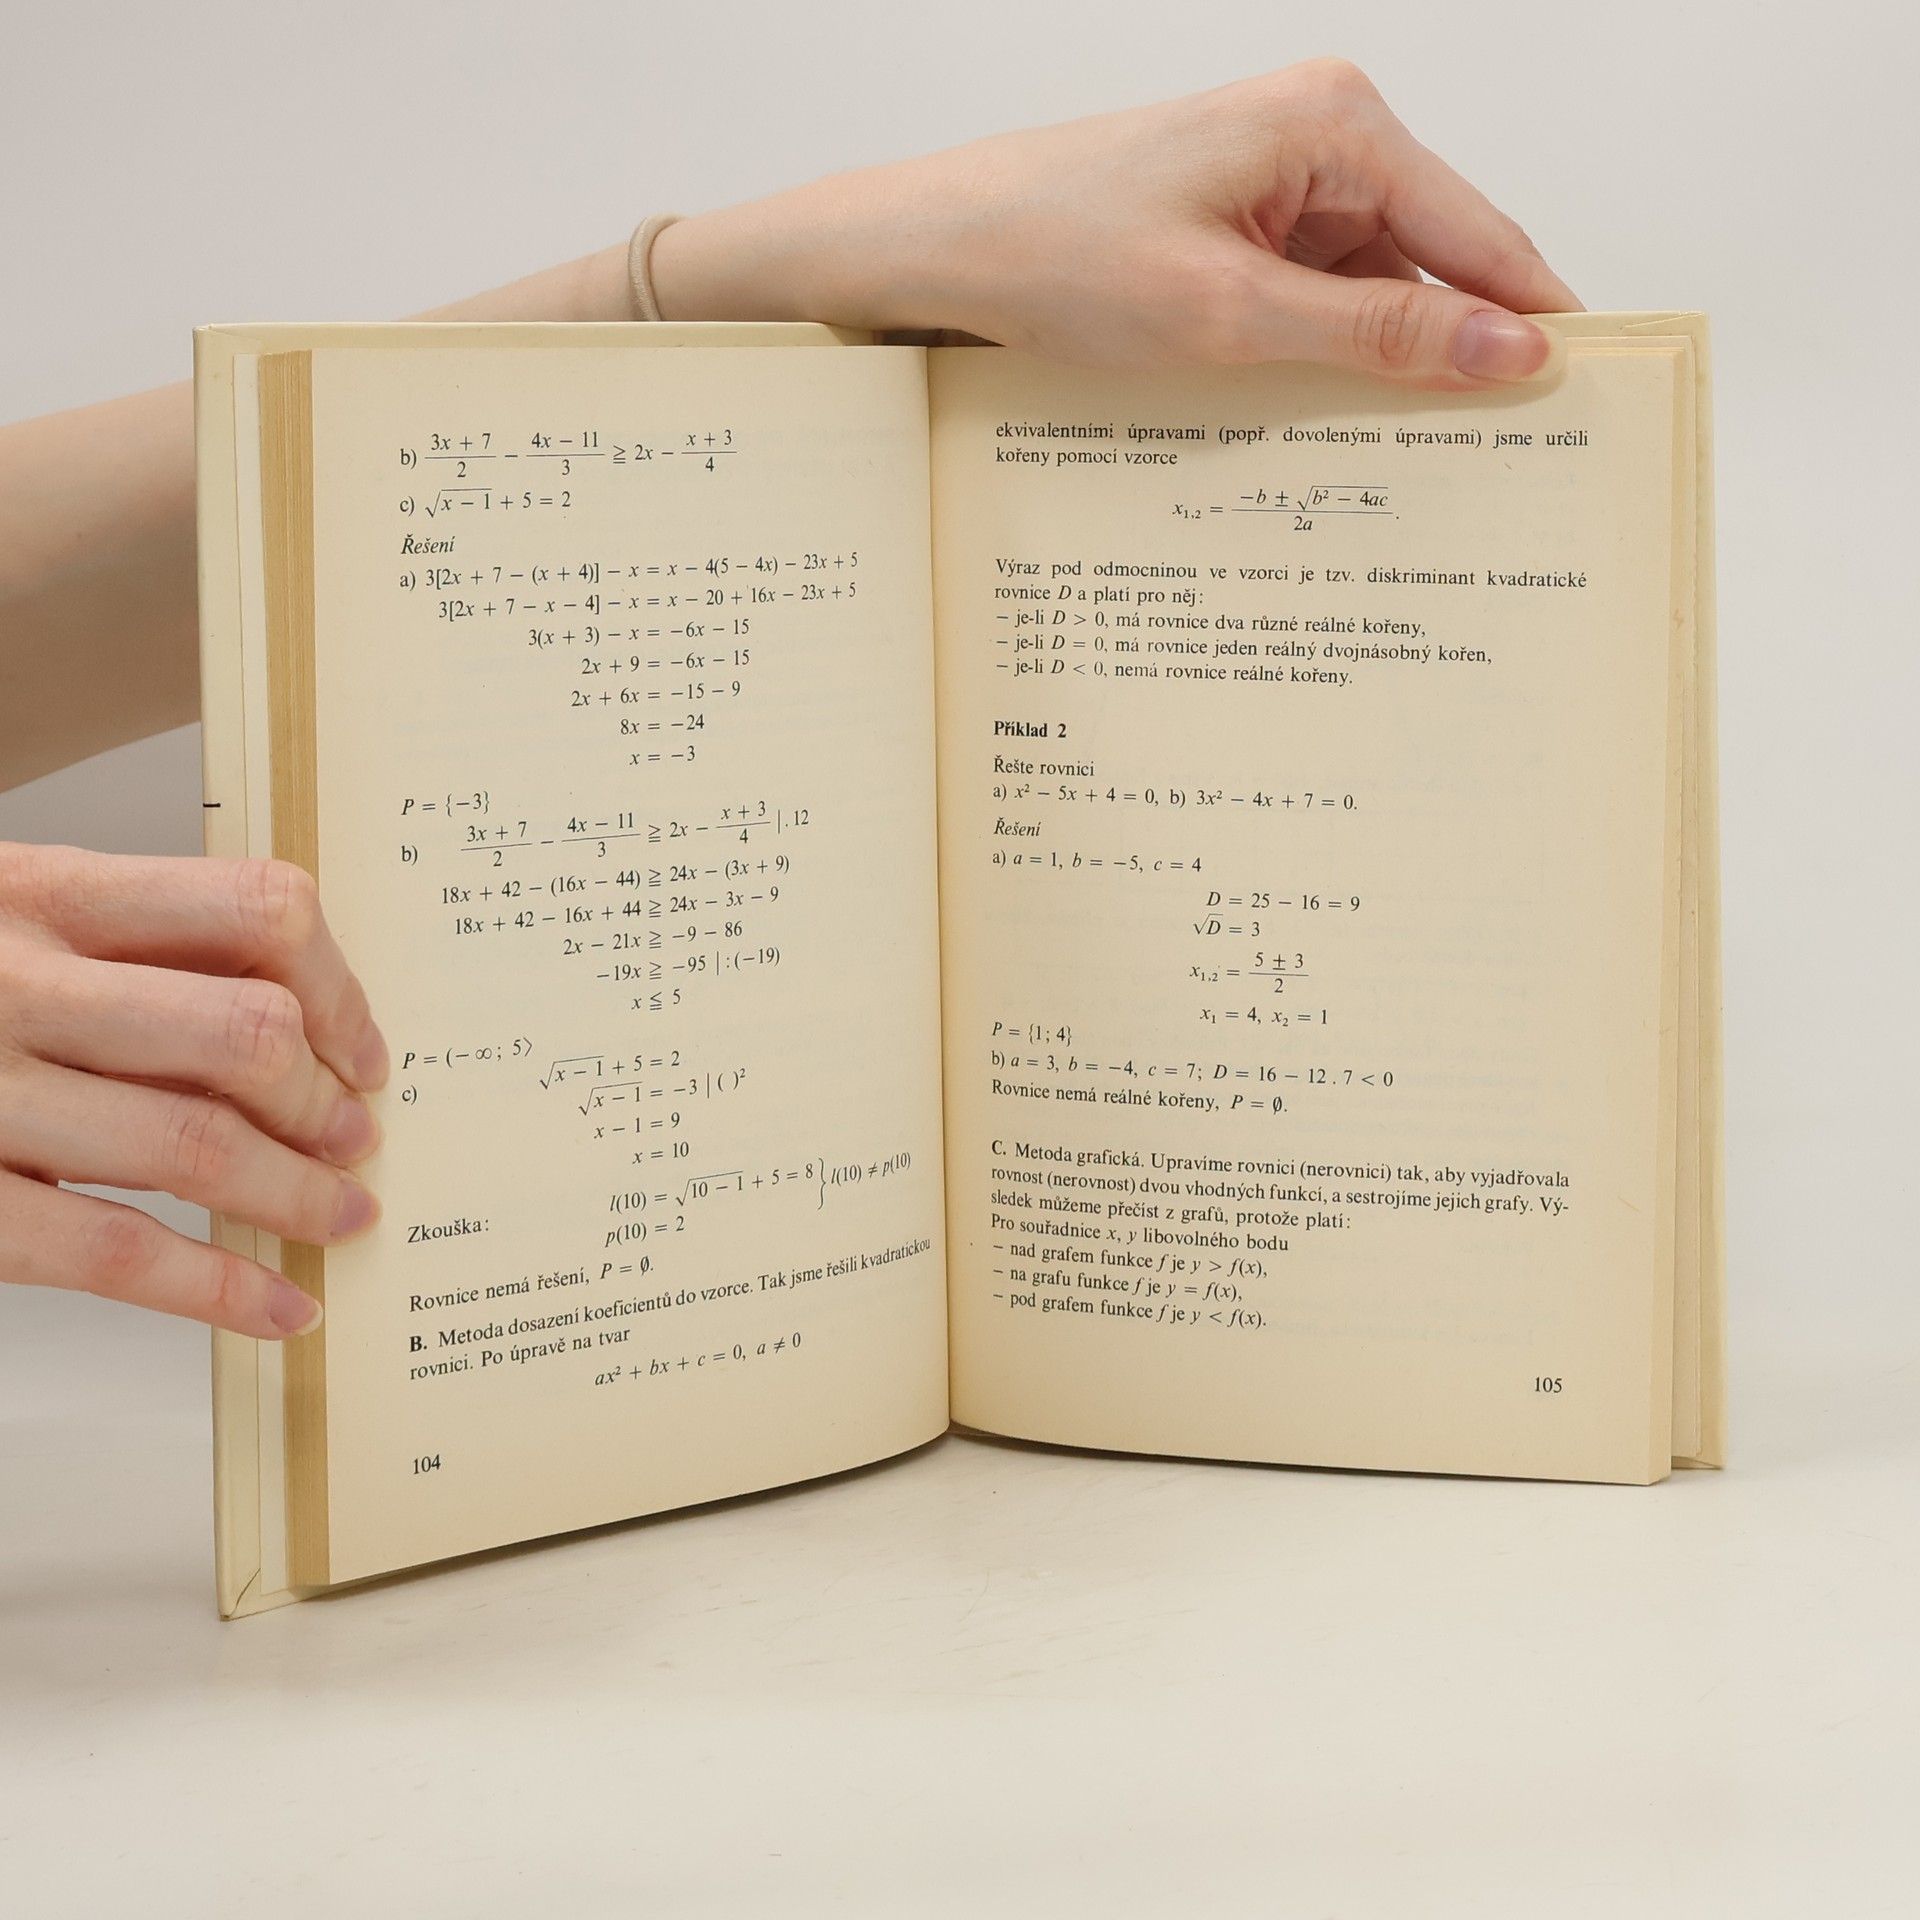 b) (3x + 7)/2 − (4x − 11)/3 ≧ 2x − (x + 3)/4
c) √(x − 1) + 5 = 2
Řešení
a) 3[2x + 7 − (x + 4)] − x = x − 4(5 − 4x) − 23x + 5
3[2x + 7 − x − 4] − x = x − 20 + 16x − 23x + 5
3(x + 3) − x = −6x − 15
2x + 9 = −6x − 15
2x + 6x = −15 − 9
8x = −24
x = −3
P = {−3}
b) (3x + 7)/2 − (4x − 11)/3 ≧ 2x − (x + 3)/4 | . 12
18x + 42 − (16x − 44) ≧ 24x − (3x + 9)
18x + 42 − 16x + 44 ≧ 24x − 3x − 9
2x − 21x ≧ −9 − 86
−19x ≧ −95 | :(−19)
x ≦ 5
P = (−∞; 5⟩
c) √(x − 1) + 5 = 2
√(x − 1) = −3 | ( )²
x − 1 = 9
x = 10
Zkouška: l(10) = √(10 − 1) + 5 = 8 } l(10) ≠ p(10)
p(10) = 2
Rovnice nemá řešení, P = ∅.
B. Metoda dosazení koeficientů do vzorce. Tak jsme řešili kvadratickou
rovnici. Po úpravě na tvar
ax² + bx + c = 0, a ≠ 0
104
ekvivalentními úpravami (popř. dovolenými úpravami) jsme určili
kořeny pomocí vzorce
x₁,₂ = (−b ± √(b² − 4ac))/2a.
Výraz pod odmocninou ve vzorci je tzv. diskriminant kvadratické
rovnice D a platí pro něj:
− je-li D > 0, má rovnice dva různé reálné kořeny,
− je-li D = 0, má rovnice jeden reálný dvojnásobný kořen,
− je-li D < 0, nemá rovnice reálné kořeny.
Příklad 2
Řešte rovnici
a) x² − 5x + 4 = 0, b) 3x² − 4x + 7 = 0.
Řešení
a) a = 1, b = −5, c = 4
D = 25 − 16 = 9
√D = 3
x₁,₂ = (5 ± 3)/2
x₁ = 4, x₂ = 1
P = {1; 4}
b) a = 3, b = −4, c = 7; D = 16 − 12 . 7 < 0
Rovnice nemá reálné kořeny, P = ∅.
C. Metoda grafická. Upravíme rovnici (nerovnici) tak, aby vyjadřovala
rovnost (nerovnost) dvou vhodných funkcí, a sestrojíme jejich grafy. Vý-
sledek můžeme přečíst z grafů, protože platí:
Pro souřadnice x, y libovolného bodu
− nad grafem funkce f je y > f(x),
− na grafu funkce f je y = f(x),
− pod grafem funkce f je y < f(x).
105